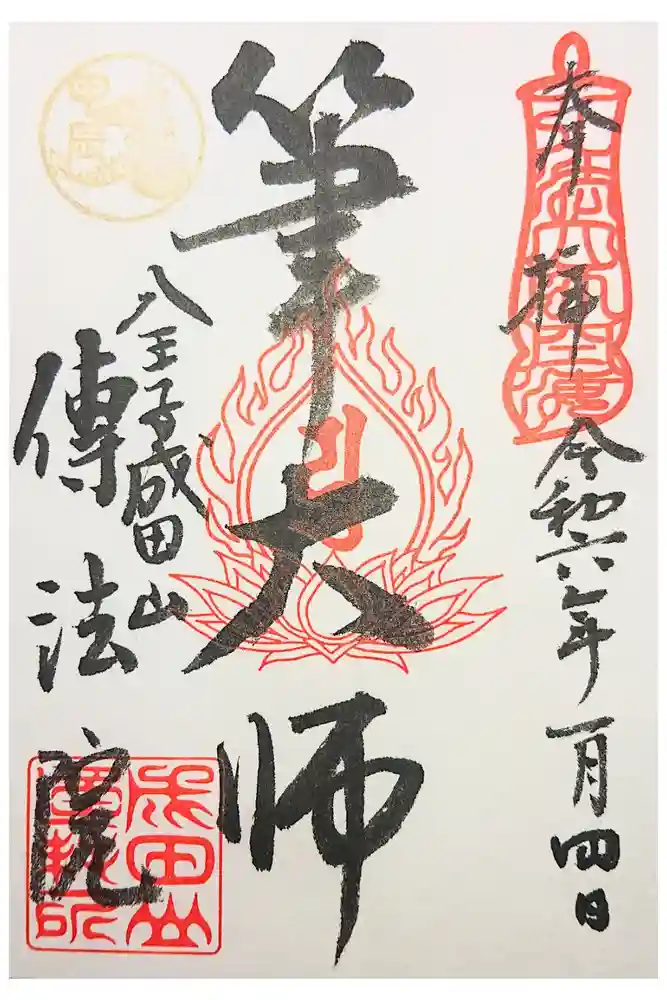 奉拝
令和六年一月四日
筆大師
八王子成田山
傳法院
成田山